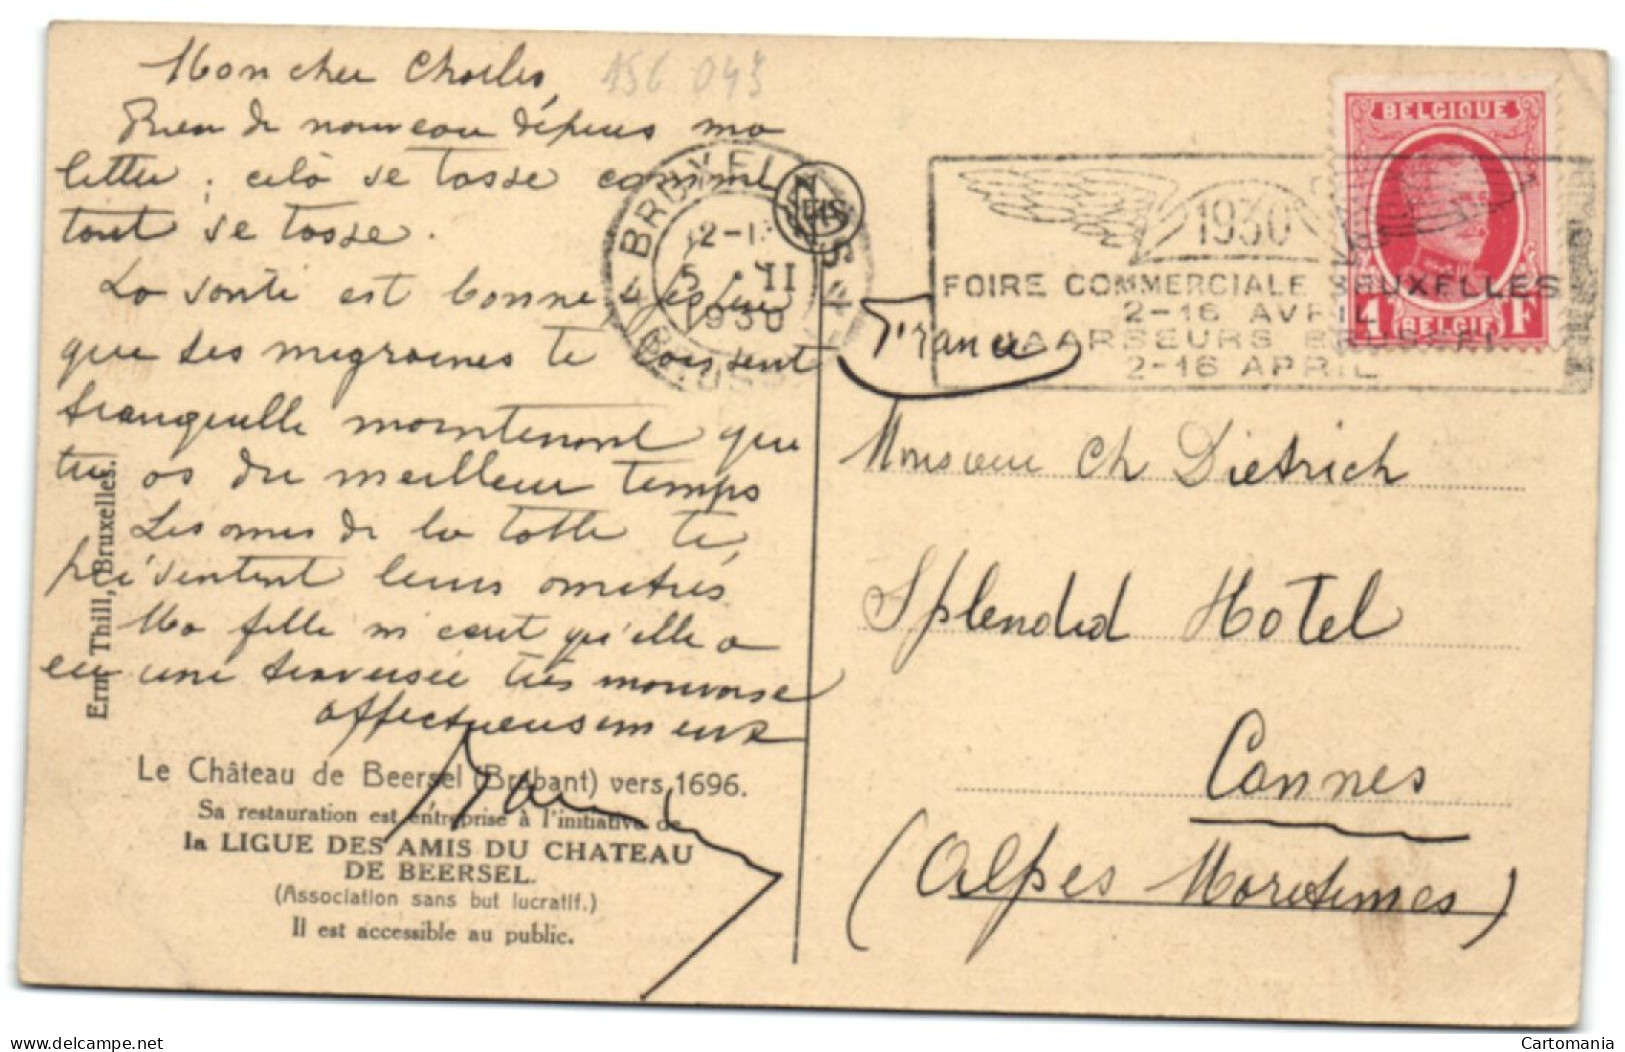 156 043
Mon cher Charles,
Rien de nouveau depuis ma
lettre ; celà se tasse comme
tout se tasse.
La santé est bonne j'espère
que tes migraines te laissent
tranquille maintenant que
tu as du meilleur temps
Les amies de la table te
présentent leurs amitiés
Ma fille m'écrit qu'elle a
eu une traversée très mauvaise
affectueusement
Erm. Thill, Bruxelles.
Le Château de Beersel (Brabant) vers 1696.
Sa restauration est entreprise à l'initiative de
la LIGUE DES AMIS DU CHATEAU
DE BEERSEL.
(Association sans but lucratif.)
Il est accessible au public.
NELS
BRUXELLES 4
5 · II
1930
4 BRUSSEL
1930
FOIRE COMMERCIALE BRUXELLES
2-16 AVRIL
JAARBEURS BRUSSEL
2-16 APRIL
BELGIQUE
1 BELGIE F
France
Monsieur Ch Dietrich
Splendid Hotel
Cannes
(Alpes Maritimes)
Cartomania